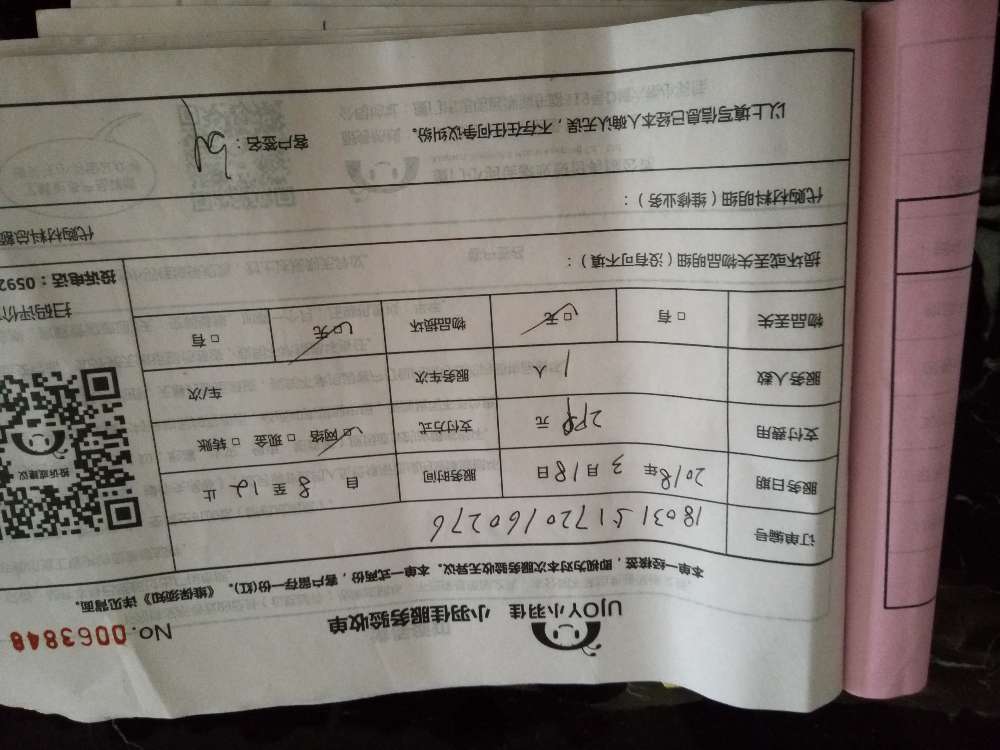 UJOY小羽佳 小羽佳服务验收单 No. 0063848
本单一经接签，即视为对本次服务验收无异议。本单一式两份，客户留存一份(红)。《维保须知》详见背面。
订单编号 180315172016 0276
服务日期 2018年3月18日 服务时间 自8至12止
支付费用 298元 支付方式 ☑网络 □现金 □转账
服务人数 1人 服务车次 车/次
物品丢失 □有 ☑无 物品损坏 ☑无 □有
投诉或建议
扫码评价
投诉电话：0592
损坏或丢失物品明细（没有可不填）：
代购材料明细（维修业务）： 代购材料总额
以上填写信息已经本人确认无误，不存在任何争议纠纷。 客户签名：